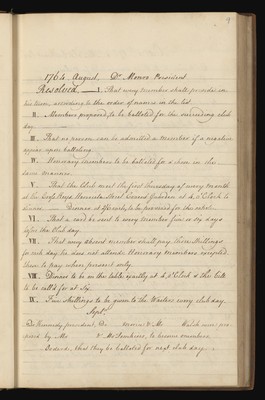 9
1764 August, Dr Monro President
Resolved. I. That every member shall preside in
his turn, according to the order of names in the list.
II. Members proposed to be balloted for the succeeding club
day.
III. That no person can be admitted a member if a negative
appear upon balloting.
IV. Honorary members to be balloted for & chosen in the
same manner.
V. That the Club meet the first Tuesday of every month
at the Coffee House Henrietta Street Covent Garden at 4 o'Clock to
dinner Dinner at to be provided for the select.
VI. That a card be sent to every member five or six days
before the Club day.
VII. That every absent member shall pay Three Shillings
for each day he does not attend. Honorary Members excepted
them to pay when present only.
VIII. Dinner to be on the table exactly at 4 o'Clock & the bill
to be call'd for at Six.
IX. Two Shillings to be given to the Waiters every club day.
Sept.
Dr Kennedy president, Dr Morris & Mr Walsh were pro-
posed by Mr & Mr Tomkins, to become members
Ordered, that they be balloted for next club day.